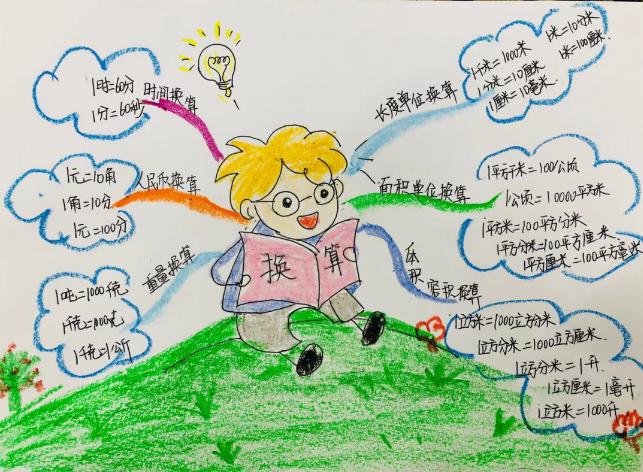 时间换算
1时=60分
1分=60秒
人民币换算
1元=10角
1角=10分
1元=100分
重量换算
1吨=1000千克
1千克=1000克
1千克=1公斤
换算
长度单位换算
1千米=1000米
1米=10分米
1分米=10厘米
1米=100厘米
1厘米=10毫米
面积单位换算
1平方千米=100公顷
1公顷=10000平方米
1平方米=100平方分米
1平方分米=100平方厘米
1平方厘米=100平方毫米
体积容积换算
1立方米=1000立方分米
1立方分米=1000立方厘米
1立方分米=1升
1立方厘米=1毫升
1立方米=1000升